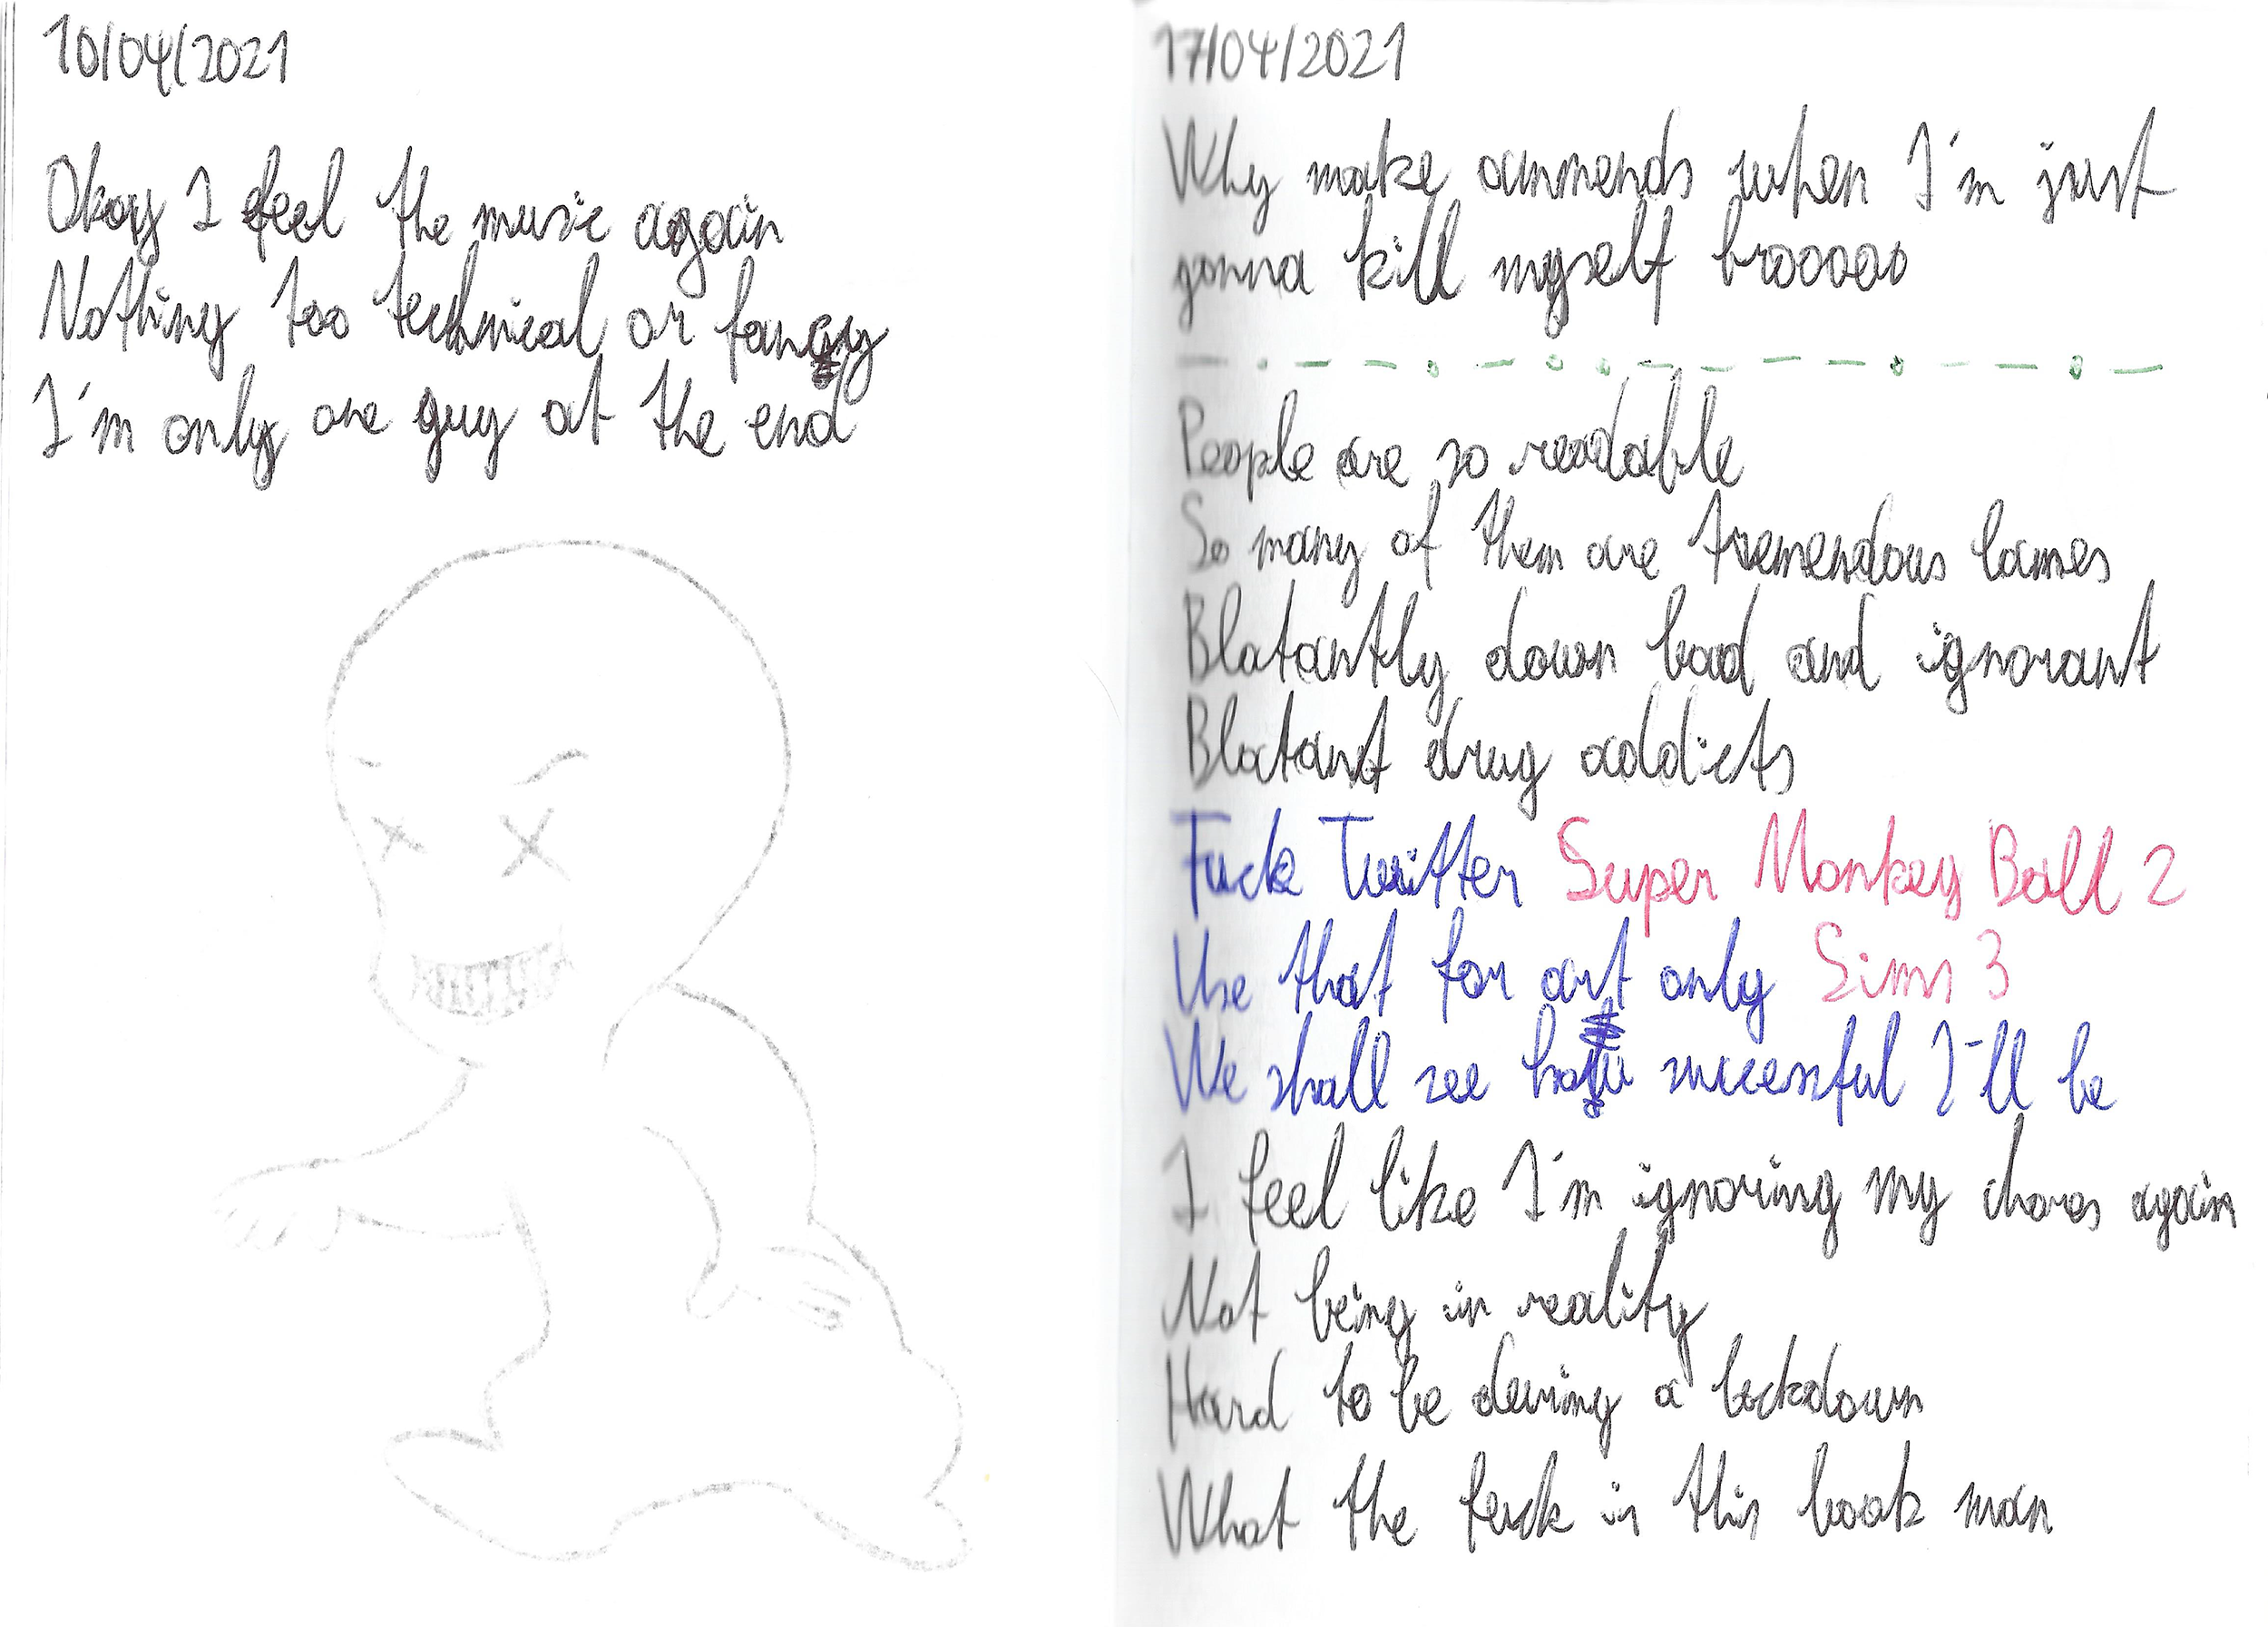 10/04/2021
Okay I feel the music again
Nothing too technical or fancy
I'm only one guy at the end
17/04/2021
Why make ammends when I'm just
gonna kill myself brooooo
People are so readable
So many of them are tremendous lames
Blatantly down bad and ignorant
Blatant drug addicts
Fuck Twitter Super Monkey Ball 2
Use that for art only Sims 3
We shall see how successful I'll be
I feel like I'm ignoring my chores again
Not being in reality
Hard to be during a lockdown
What the fuck is this book man